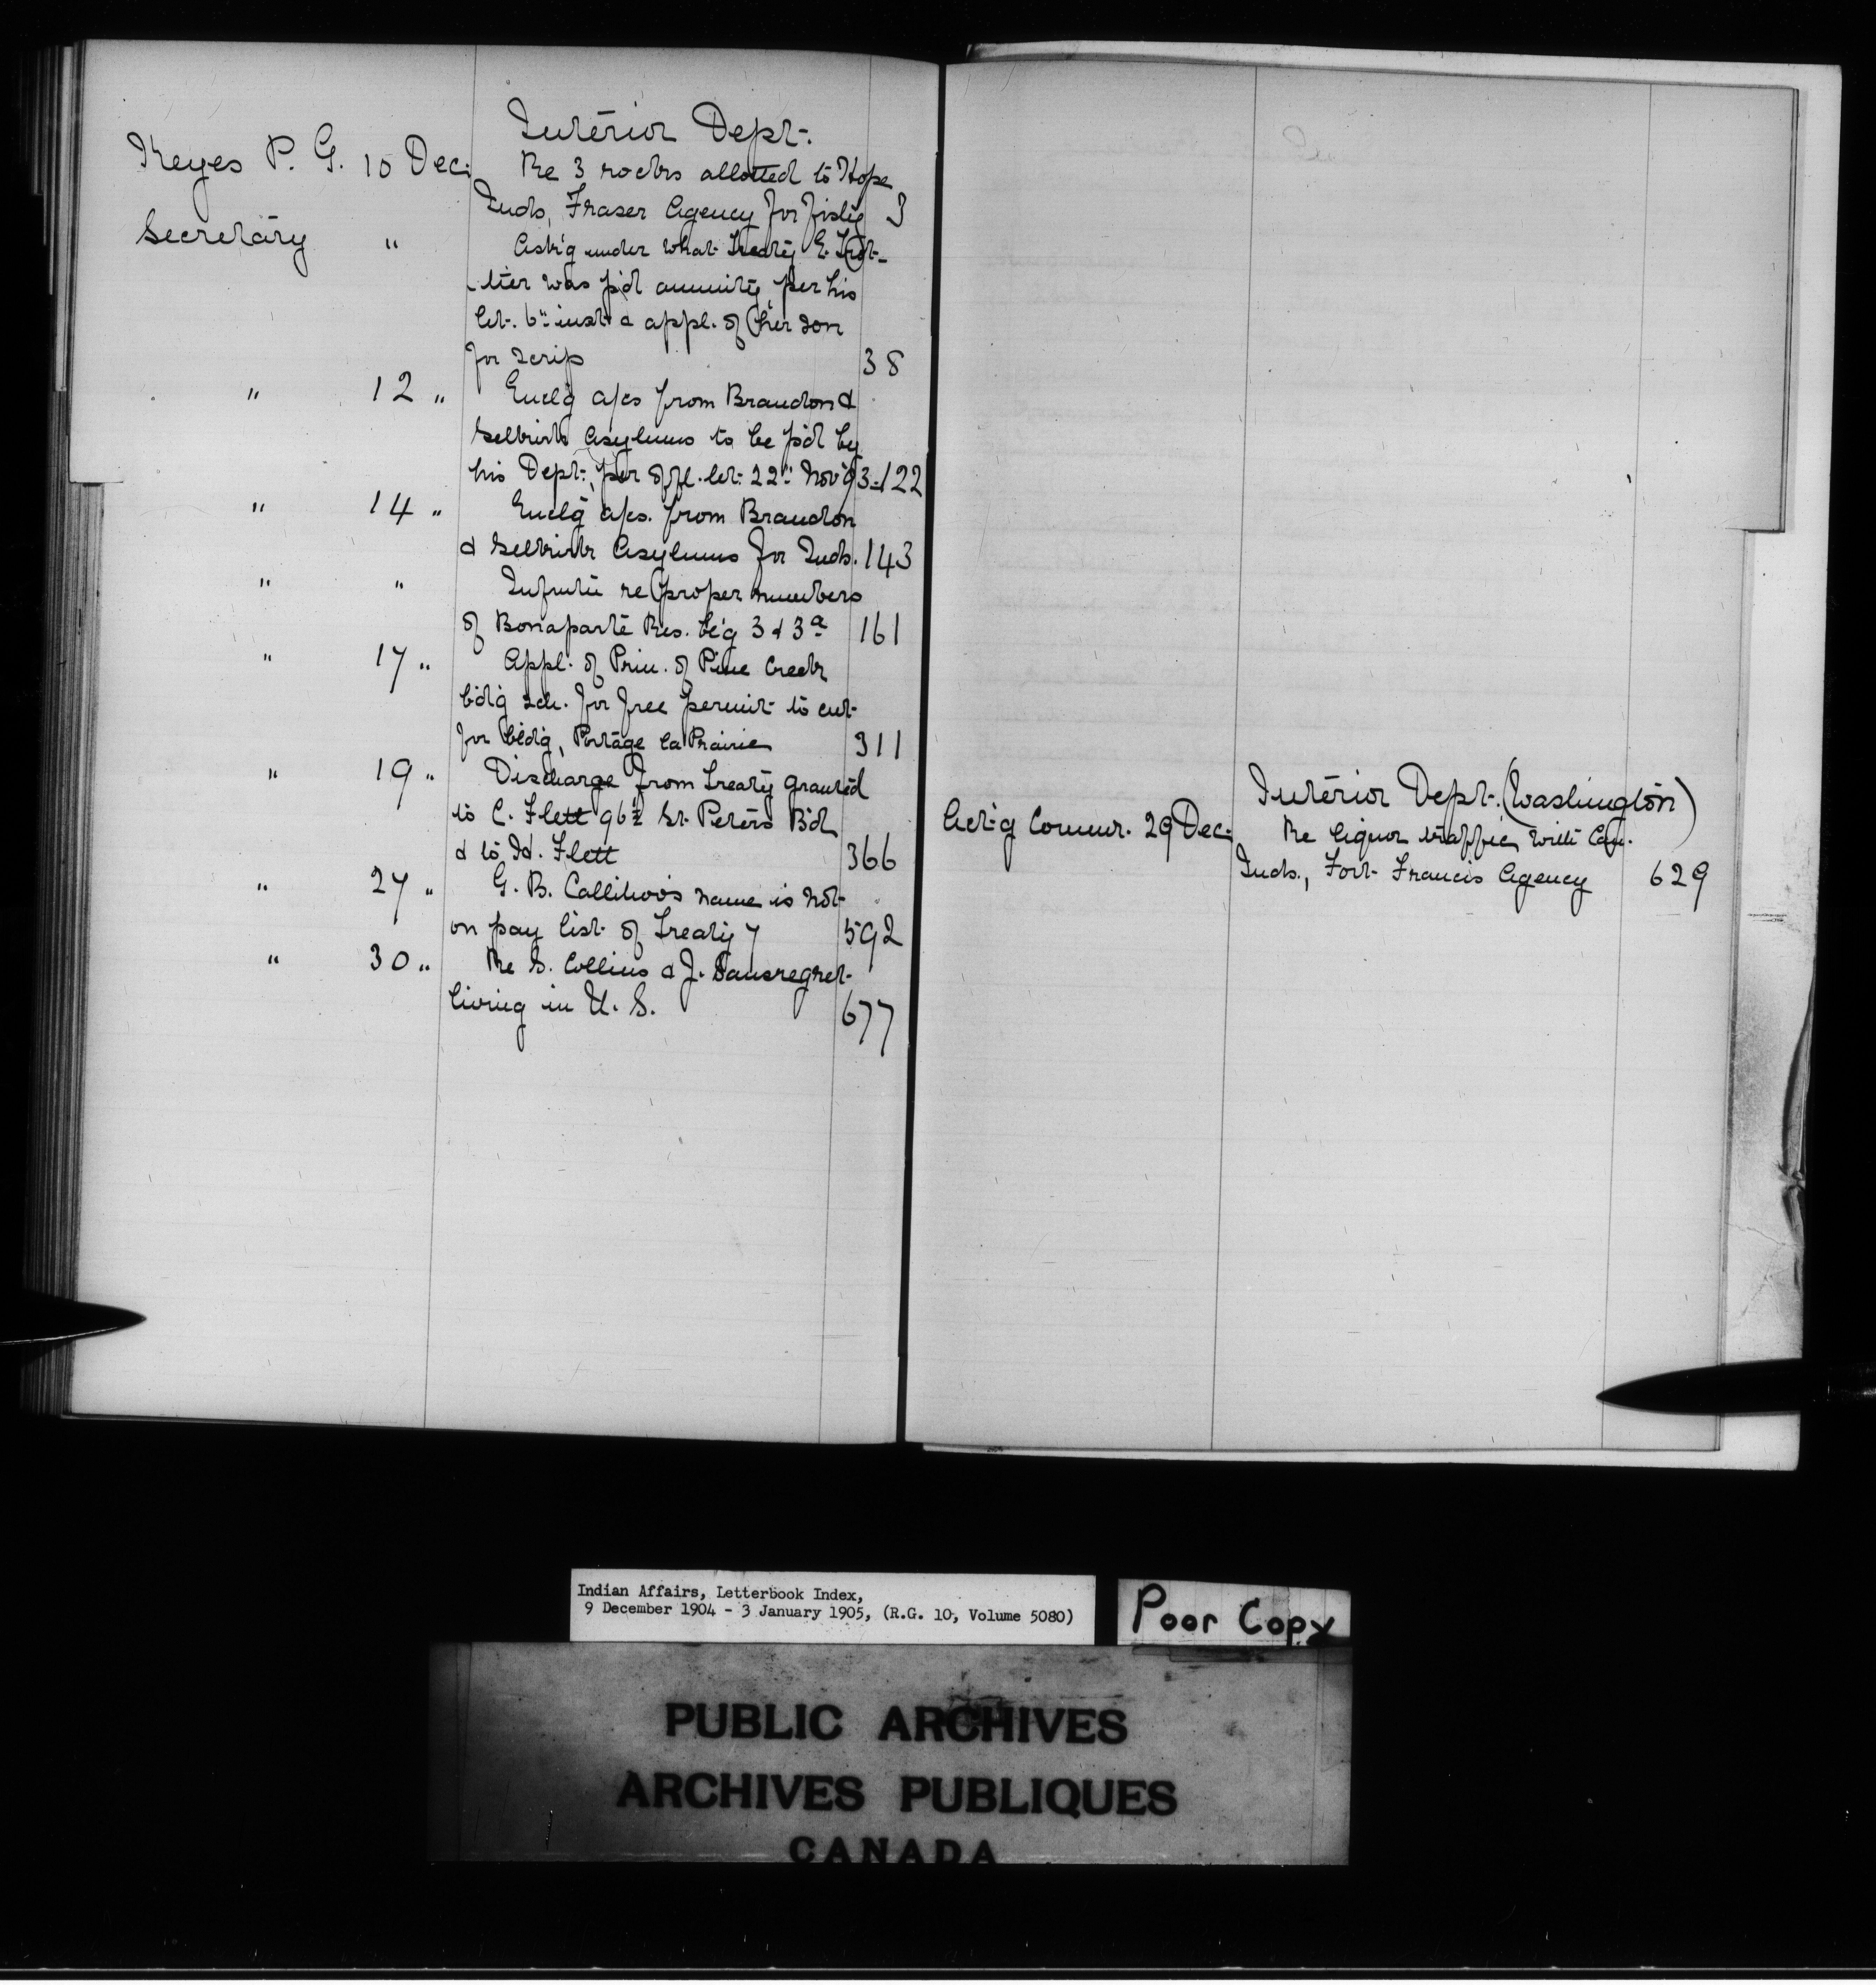 Interior Dept.
Keyes P. G. 10 Dec. Re 3 rocks allotted to Hope
Inds, Fraser Agency for fish'g 3
Secretary " Ask'g under what Treaty E. Trot-
ter was p'd annuity, per his
let. 6th inst & appl. of her son
for scrip 38
" 12 " Encl'g a/cs from Brandon &
Selkirk Asylums to be p'd by
his Dept., per offl. let. 22nd Nov '93 - 122
" 14 " Encl'g a/cs. from Brandon
& Selkirk Asylums for Inds. 143
" " re proper numbers
of Bonaparte Res. be'g 3 & 3a 161
" 17 " Appl. of Prin. of Pine Creek
bd'g sch. for free permit to cut
for bld'g, Portage la Prairie 311
" 19 " Discharge from Treaty granted
to C. Flett 96½ St. Peters B'd
& to Id. Flett 366
" 27 " G. B. Callihoo's name is not
on pay list of Treaty 7 592
" 30 " Re S. Collins & J. Sansregret
living in U. S. 677
Interior Dept. (Washington)
Act'g Commr. 29 Dec. Re liquor traffic with Can.
Inds., Fort Francis Agency 629
Indian Affairs, Letterbook Index,
9 December 1904 - 3 January 1905, (R.G. 10, Volume 5080)
Poor Copy
PUBLIC ARCHIVES
ARCHIVES PUBLIQUES
CANADA